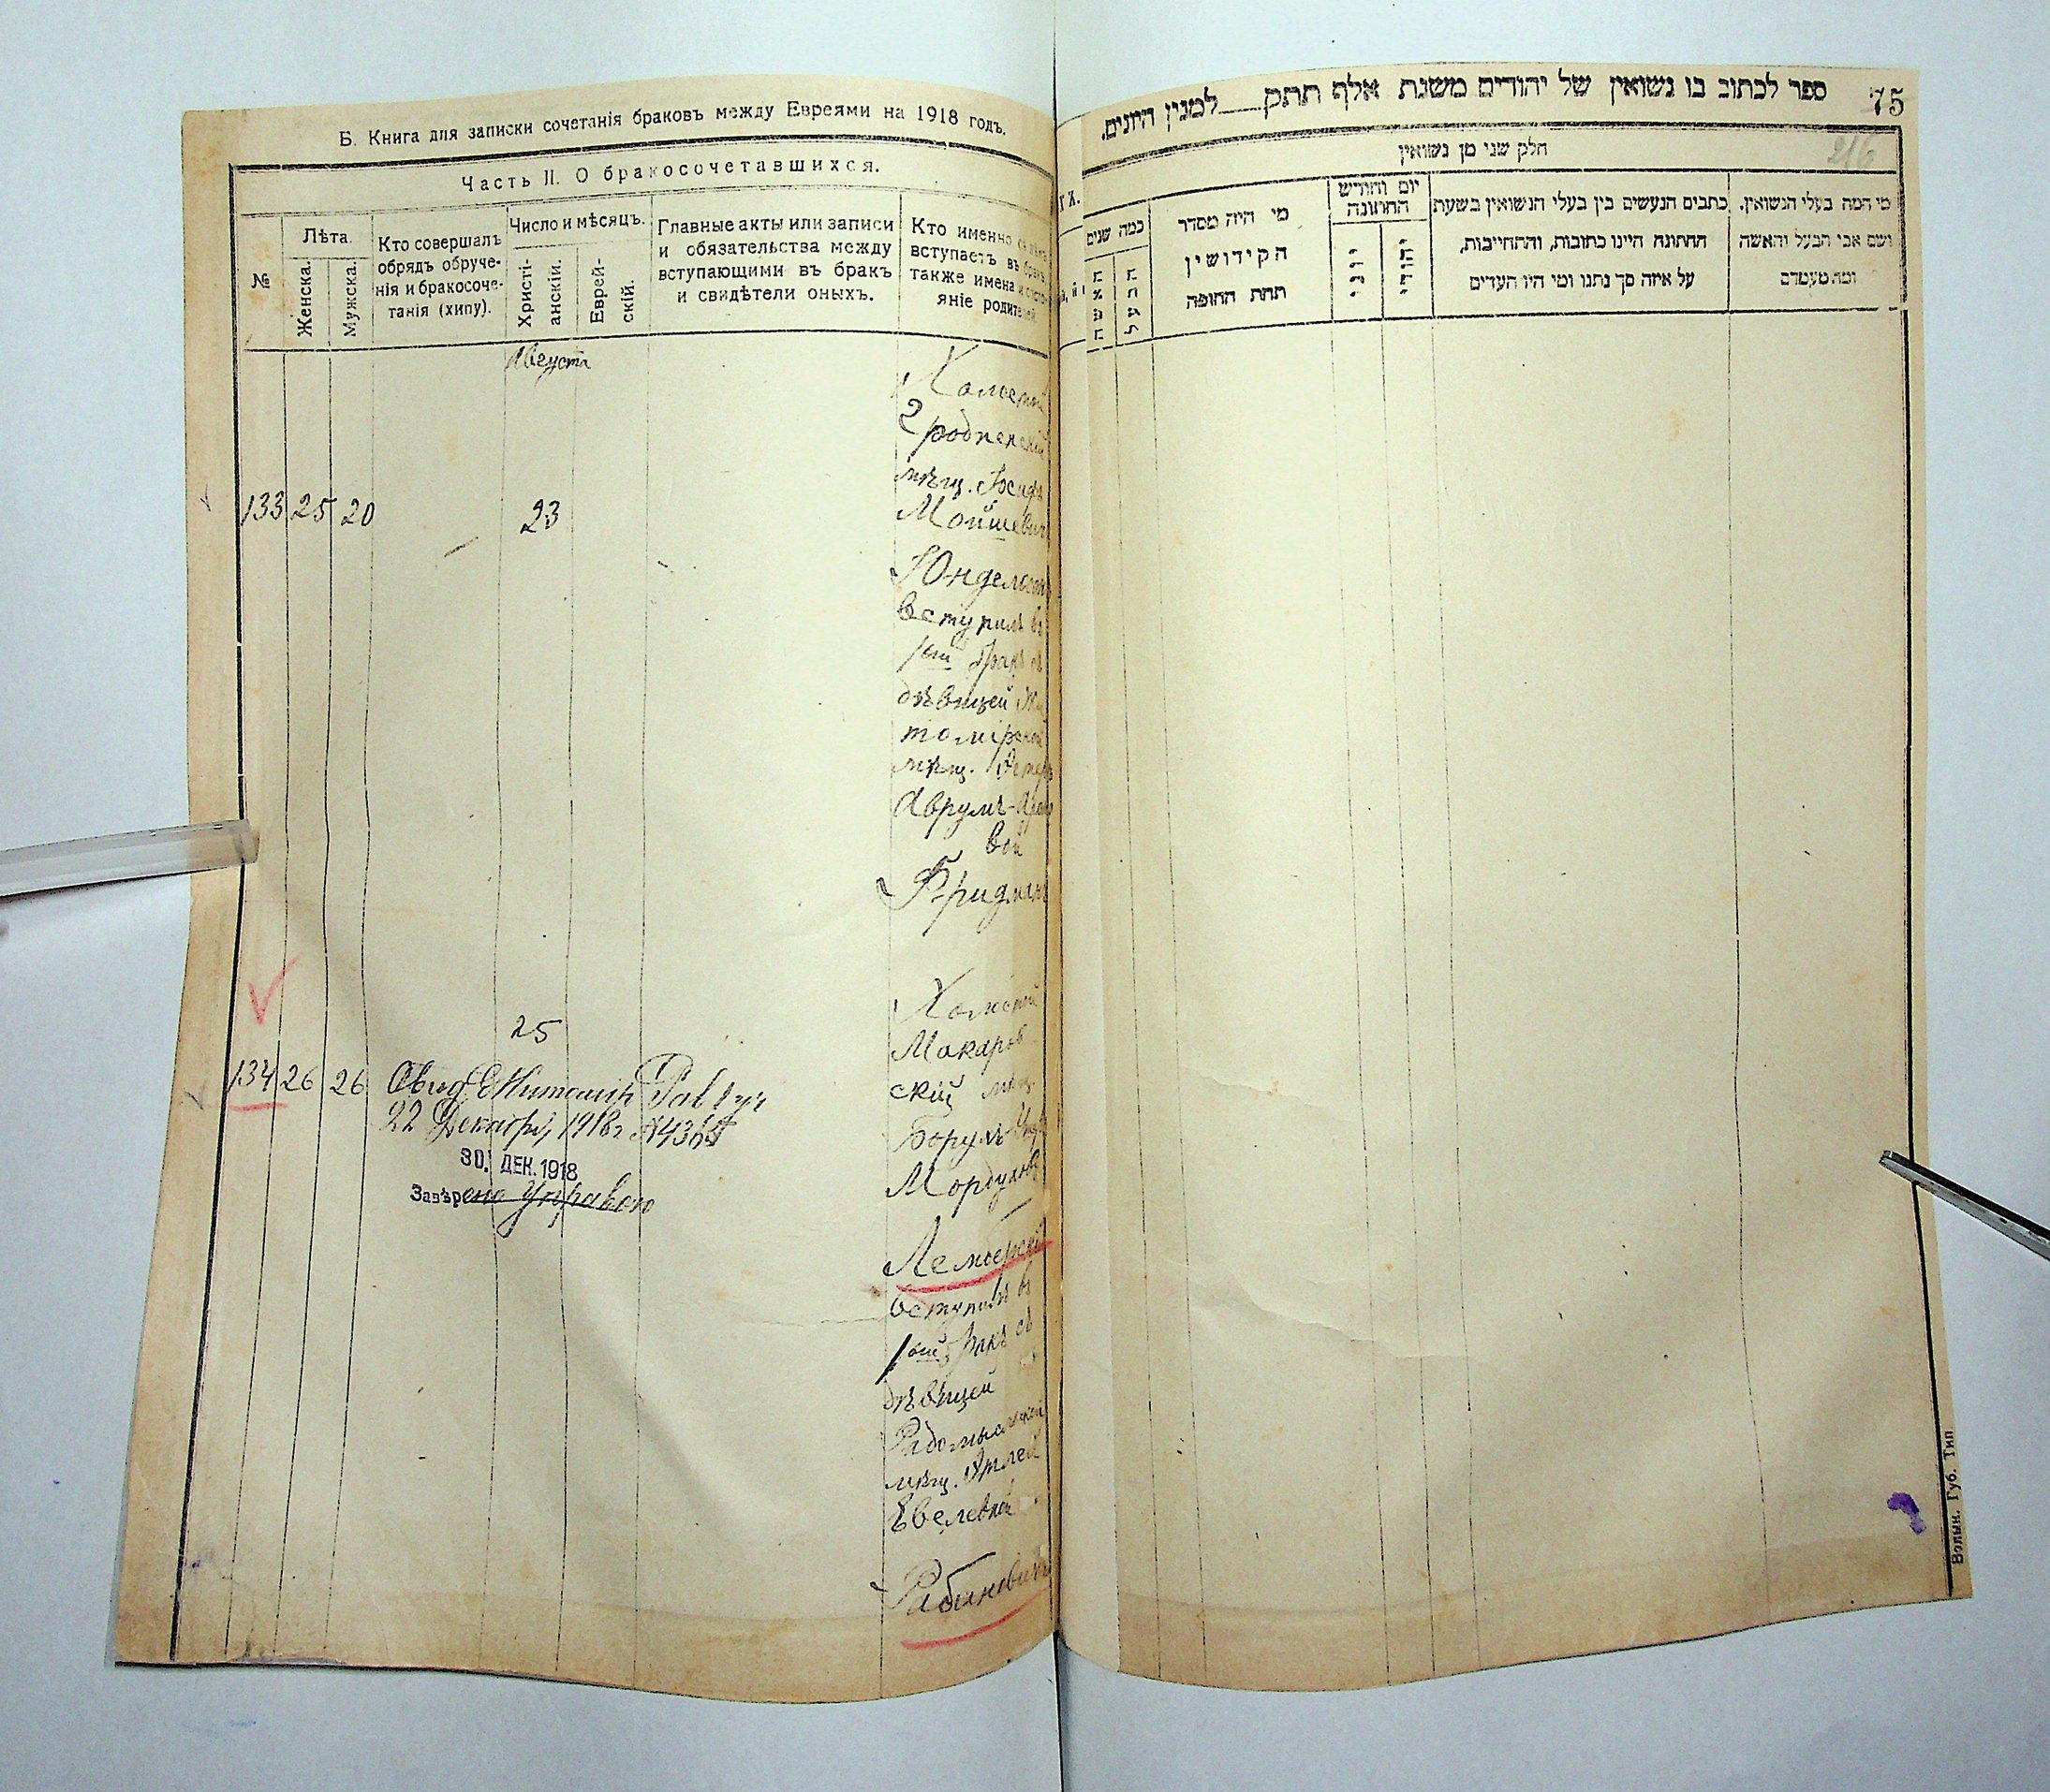 Б. Книга для записки сочетанія браковъ между Евреями на 1918 годъ.
Часть II. О бракосочетавшихся.
№
Лѣта.
Женска.
Мужска.
Кто совершалъ
обрядъ обруче-
нія и бракосоче-
танія (хипу).
Число и мѣсяцъ.
Христі-
анскій.
Еврей-
скій.
Главные акты или записи
и обязательства между
вступающими въ бракъ
и свидѣтели оныхъ.
Кто именно
вступаетъ въ бракъ
также имена и
яніе родителей
Августа
Холостой
Гродненскій
мѣщ.
133 25 20 23
Мойшевичъ
вступилъ въ
1ый бракъ съ
дѣвицей Жи
томірской
мѣщ.
Аврумъ-
вой
Фридманъ
25
Холостой
Макаров
134 26 26
скій мѣщ.
22 Декабря 1918г
30. ДЕК. 1918
Завѣрено Управою
Борухъ
Мордухов
вступилъ въ
1ый бракъ съ
дѣвицей
Радомысльской
мѣщ.
Рабиновичъ
75
216
ספר לכתוב בו נשואין של יהודים משנת אלף תתק למנין היונים.
חלק שני מן נשואין
כמה שנים
האשה
הבעל
מי היה מסדר
הקידושין
תחת החופה
יום וחודש
החתונה
יוני
יהודי
כתבים הנעשים בין בעלי הנשואין בשעת
החתונה היינו כתובות, והתחייבות,
על איזה סך נתנו ומי היו העדים
מי המה בעלי הנשואין,
ושם אבי הבעל והאשה
ומה מעמדם
Волын. Губ. Тип.